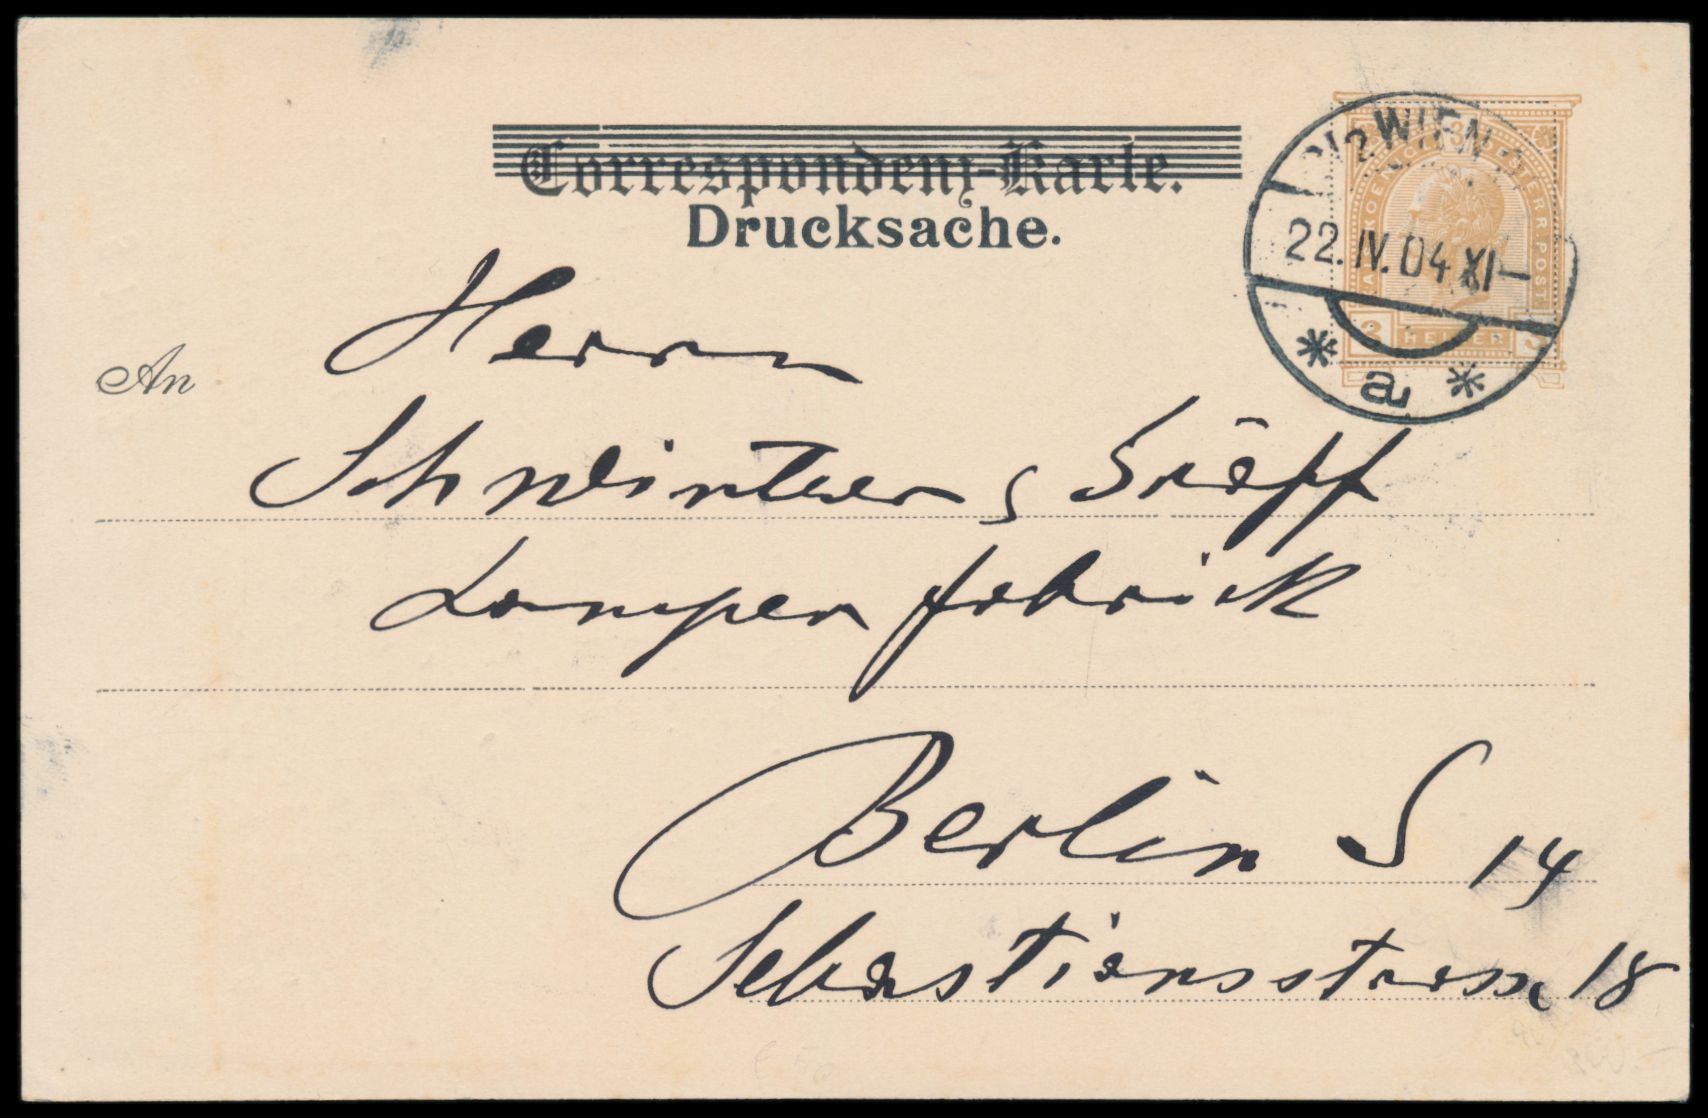 Correspondenz-Karte.
Drucksache.
2/2 WIEN
22.IV.04 XI–
* a *
3 HELLER 3
An
Herrn
Schwintzer & Gräff
Lampenfabrick
Berlin S 14
Sebastianstrasse 18